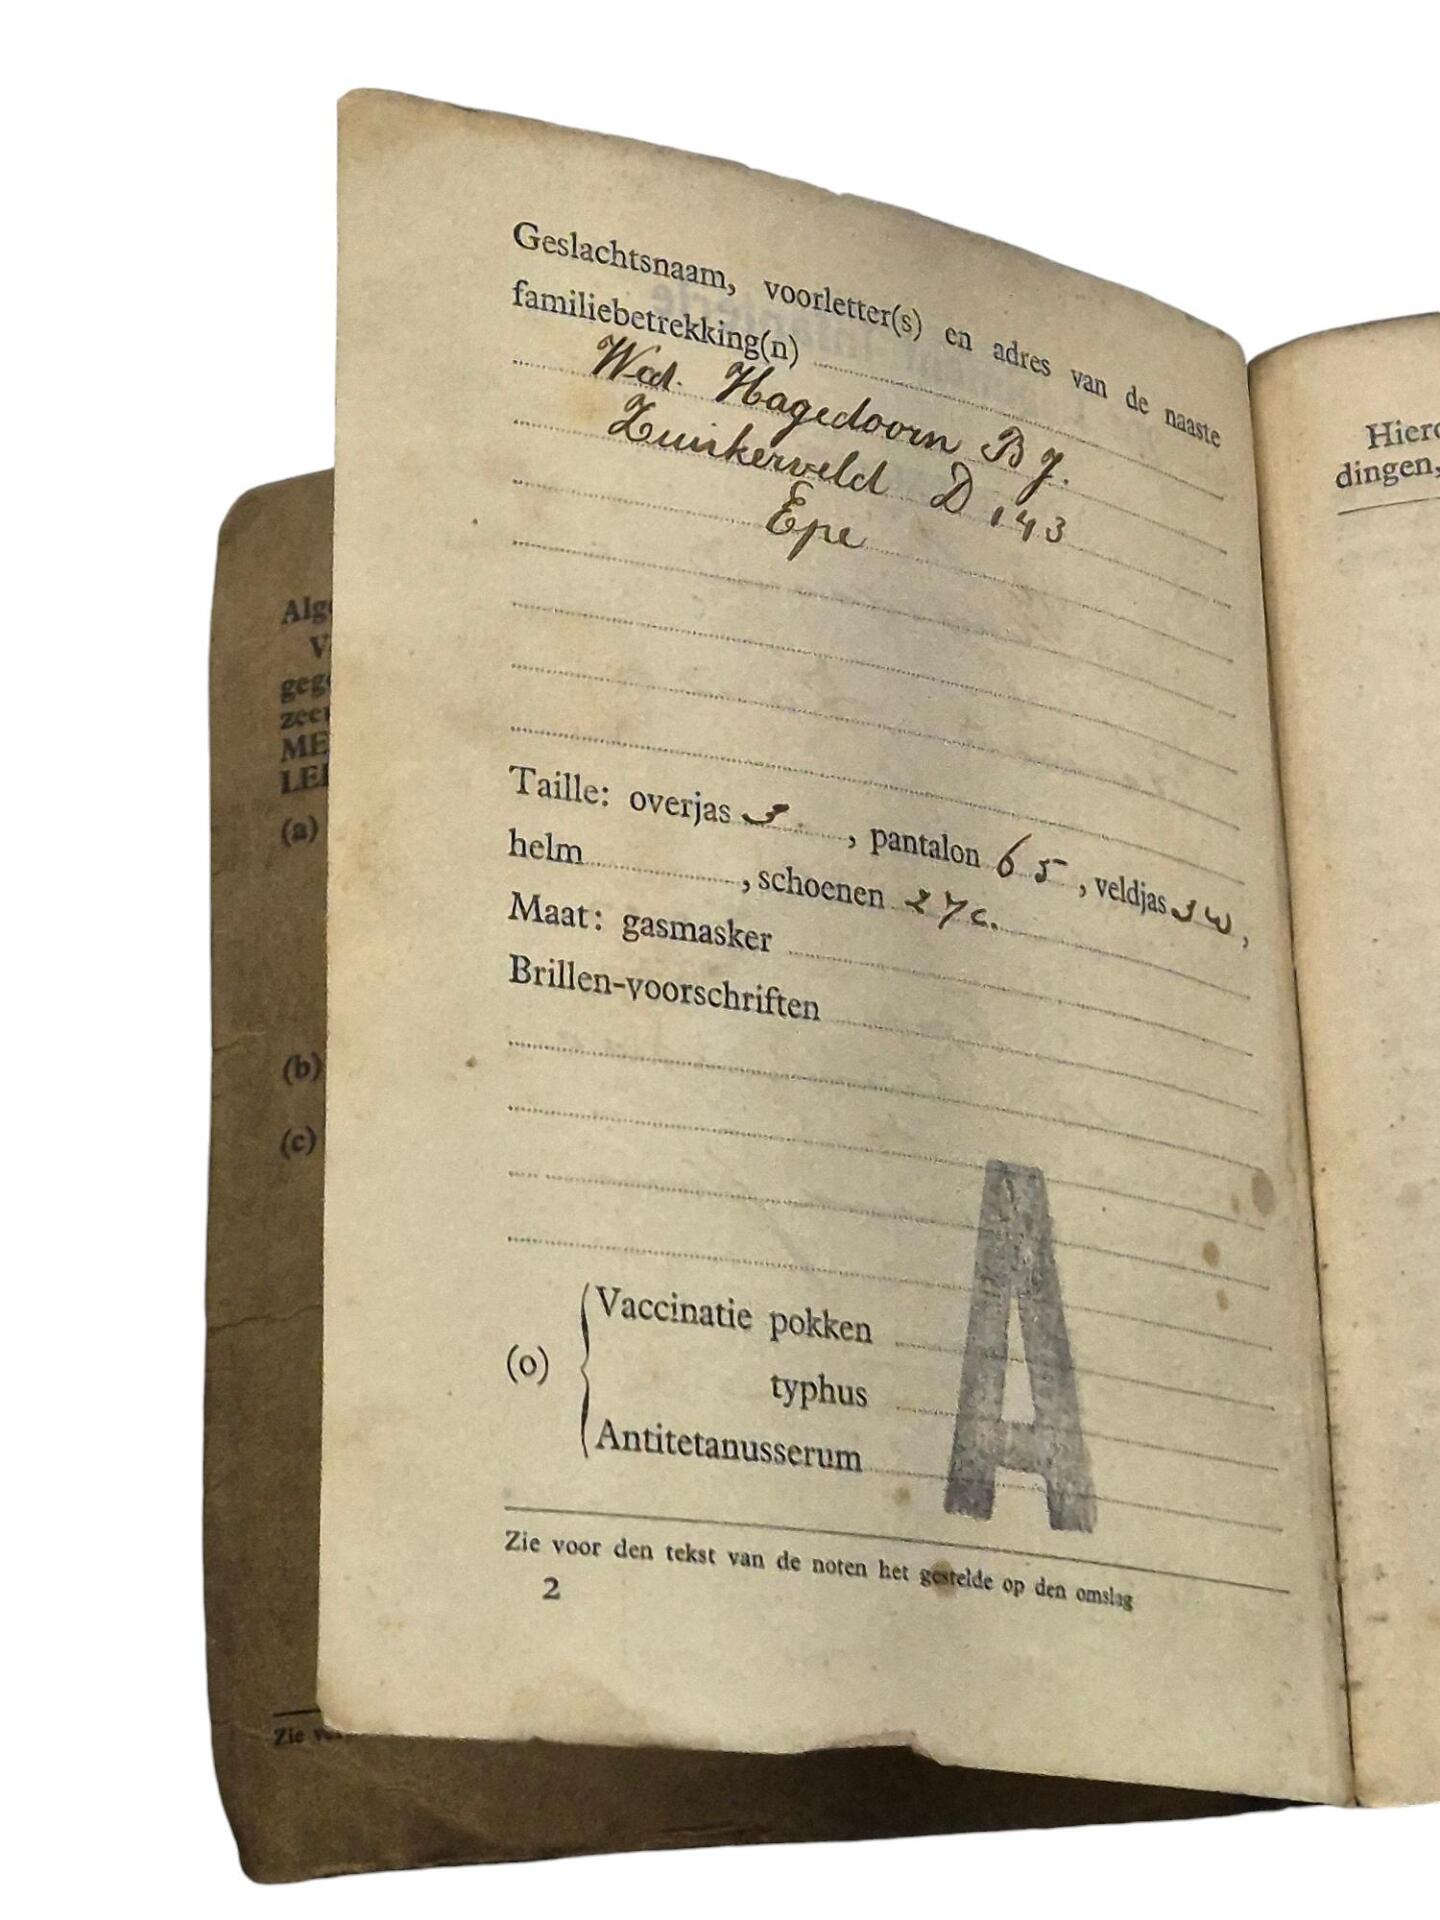 Geslachtsnaam, voorletter(s) en adres van de naaste
familiebetrekking(n)
Wed. Hagedoorn B J.
Zuukerveld D 143
Epe
Taille: overjas 3 , pantalon 6 5 , veldjas 3 W ,
helm , schoenen 27 c.
Maat: gasmasker
Brillen-voorschriften
(o) Vaccinatie pokken
typhus
Antitetanusserum
A
Zie voor den tekst van de noten het gestelde op den omslag
2
Alg
V
geg
zee
ME
LE
(a)
(b)
(c)
Zie
Hier
dingen,